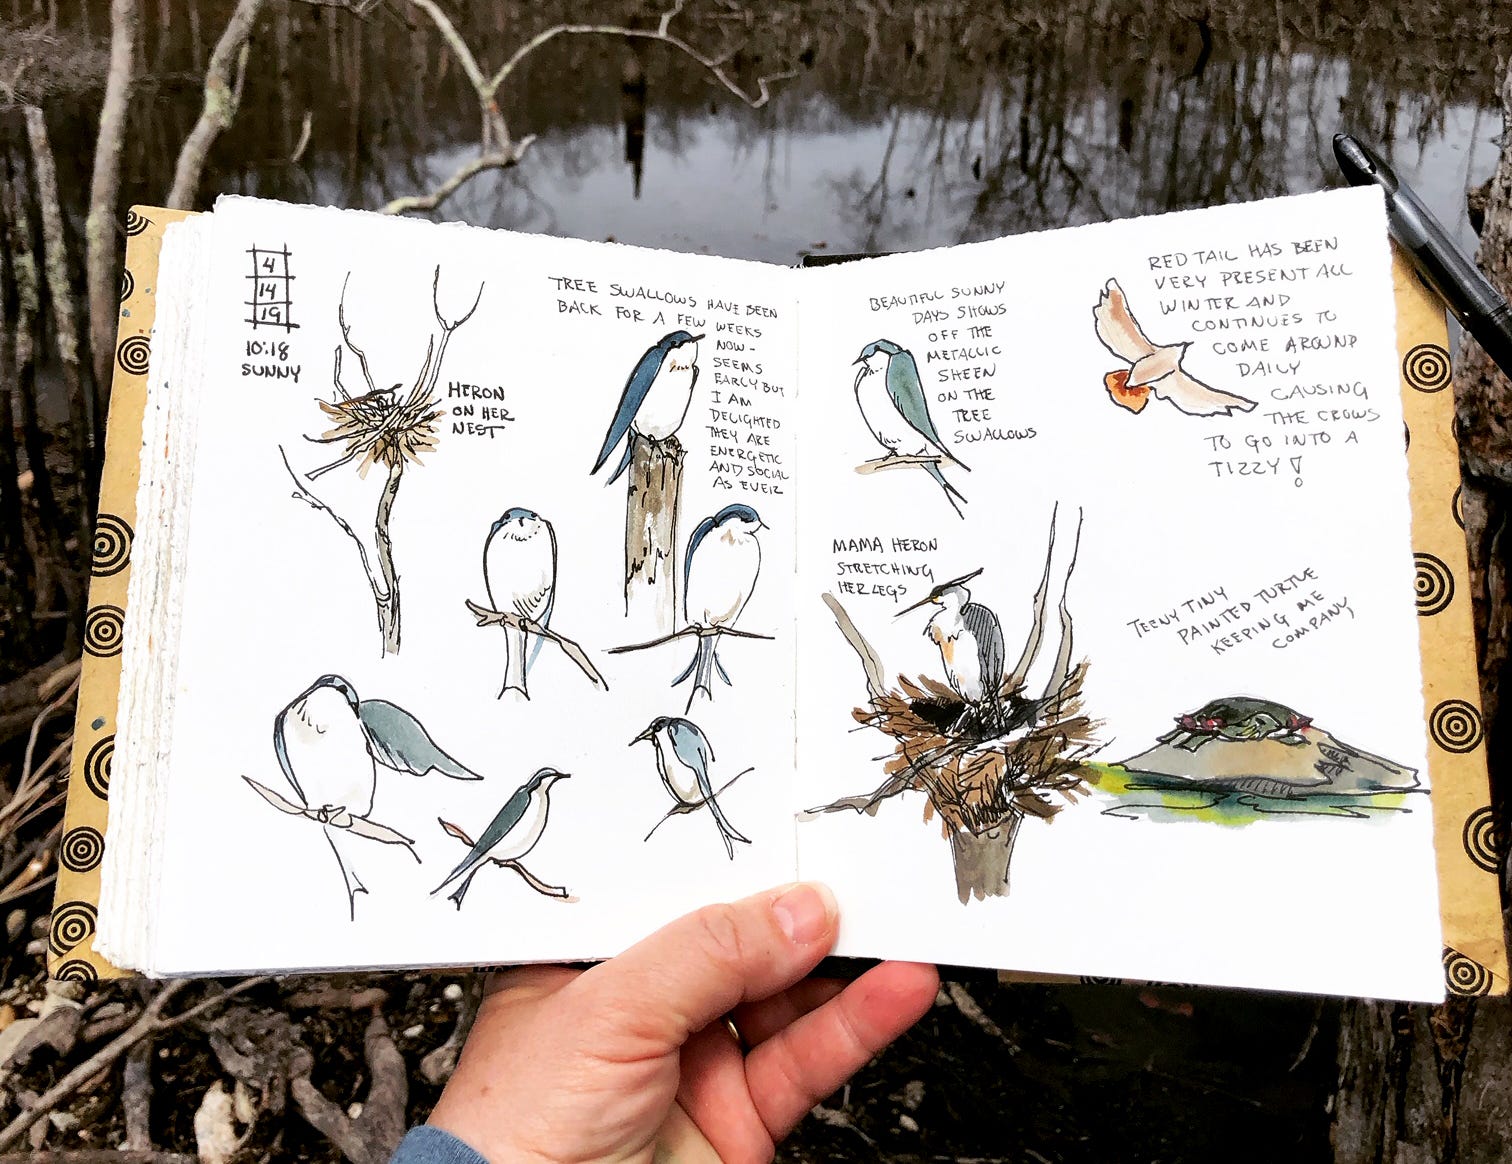 4
14
19
10:18
SUNNY
HERON
ON HER
NEST
TREE SWALLOWS HAVE BEEN
BACK FOR A FEW WEEKS
NOW -
SEEMS
EARLY BUT
I AM
DELIGHTED
THEY ARE
ENERGETIC
AND SOCIAL
AS EVER
BEAUTIFUL SUNNY
DAYS SHOWS
OFF THE
METALLIC
SHEEN
ON THE
TREE
SWALLOWS
RED TAIL HAS BEEN
VERY PRESENT ALL
WINTER AND
CONTINUES TO
COME AROUND
DAILY
CAUSING
THE CROWS
TO GO INTO A
TIZZY!
MAMA HERON
STRETCHING
HER LEGS
TEENY TINY
PAINTED TURTLE
KEEPING ME
COMPANY